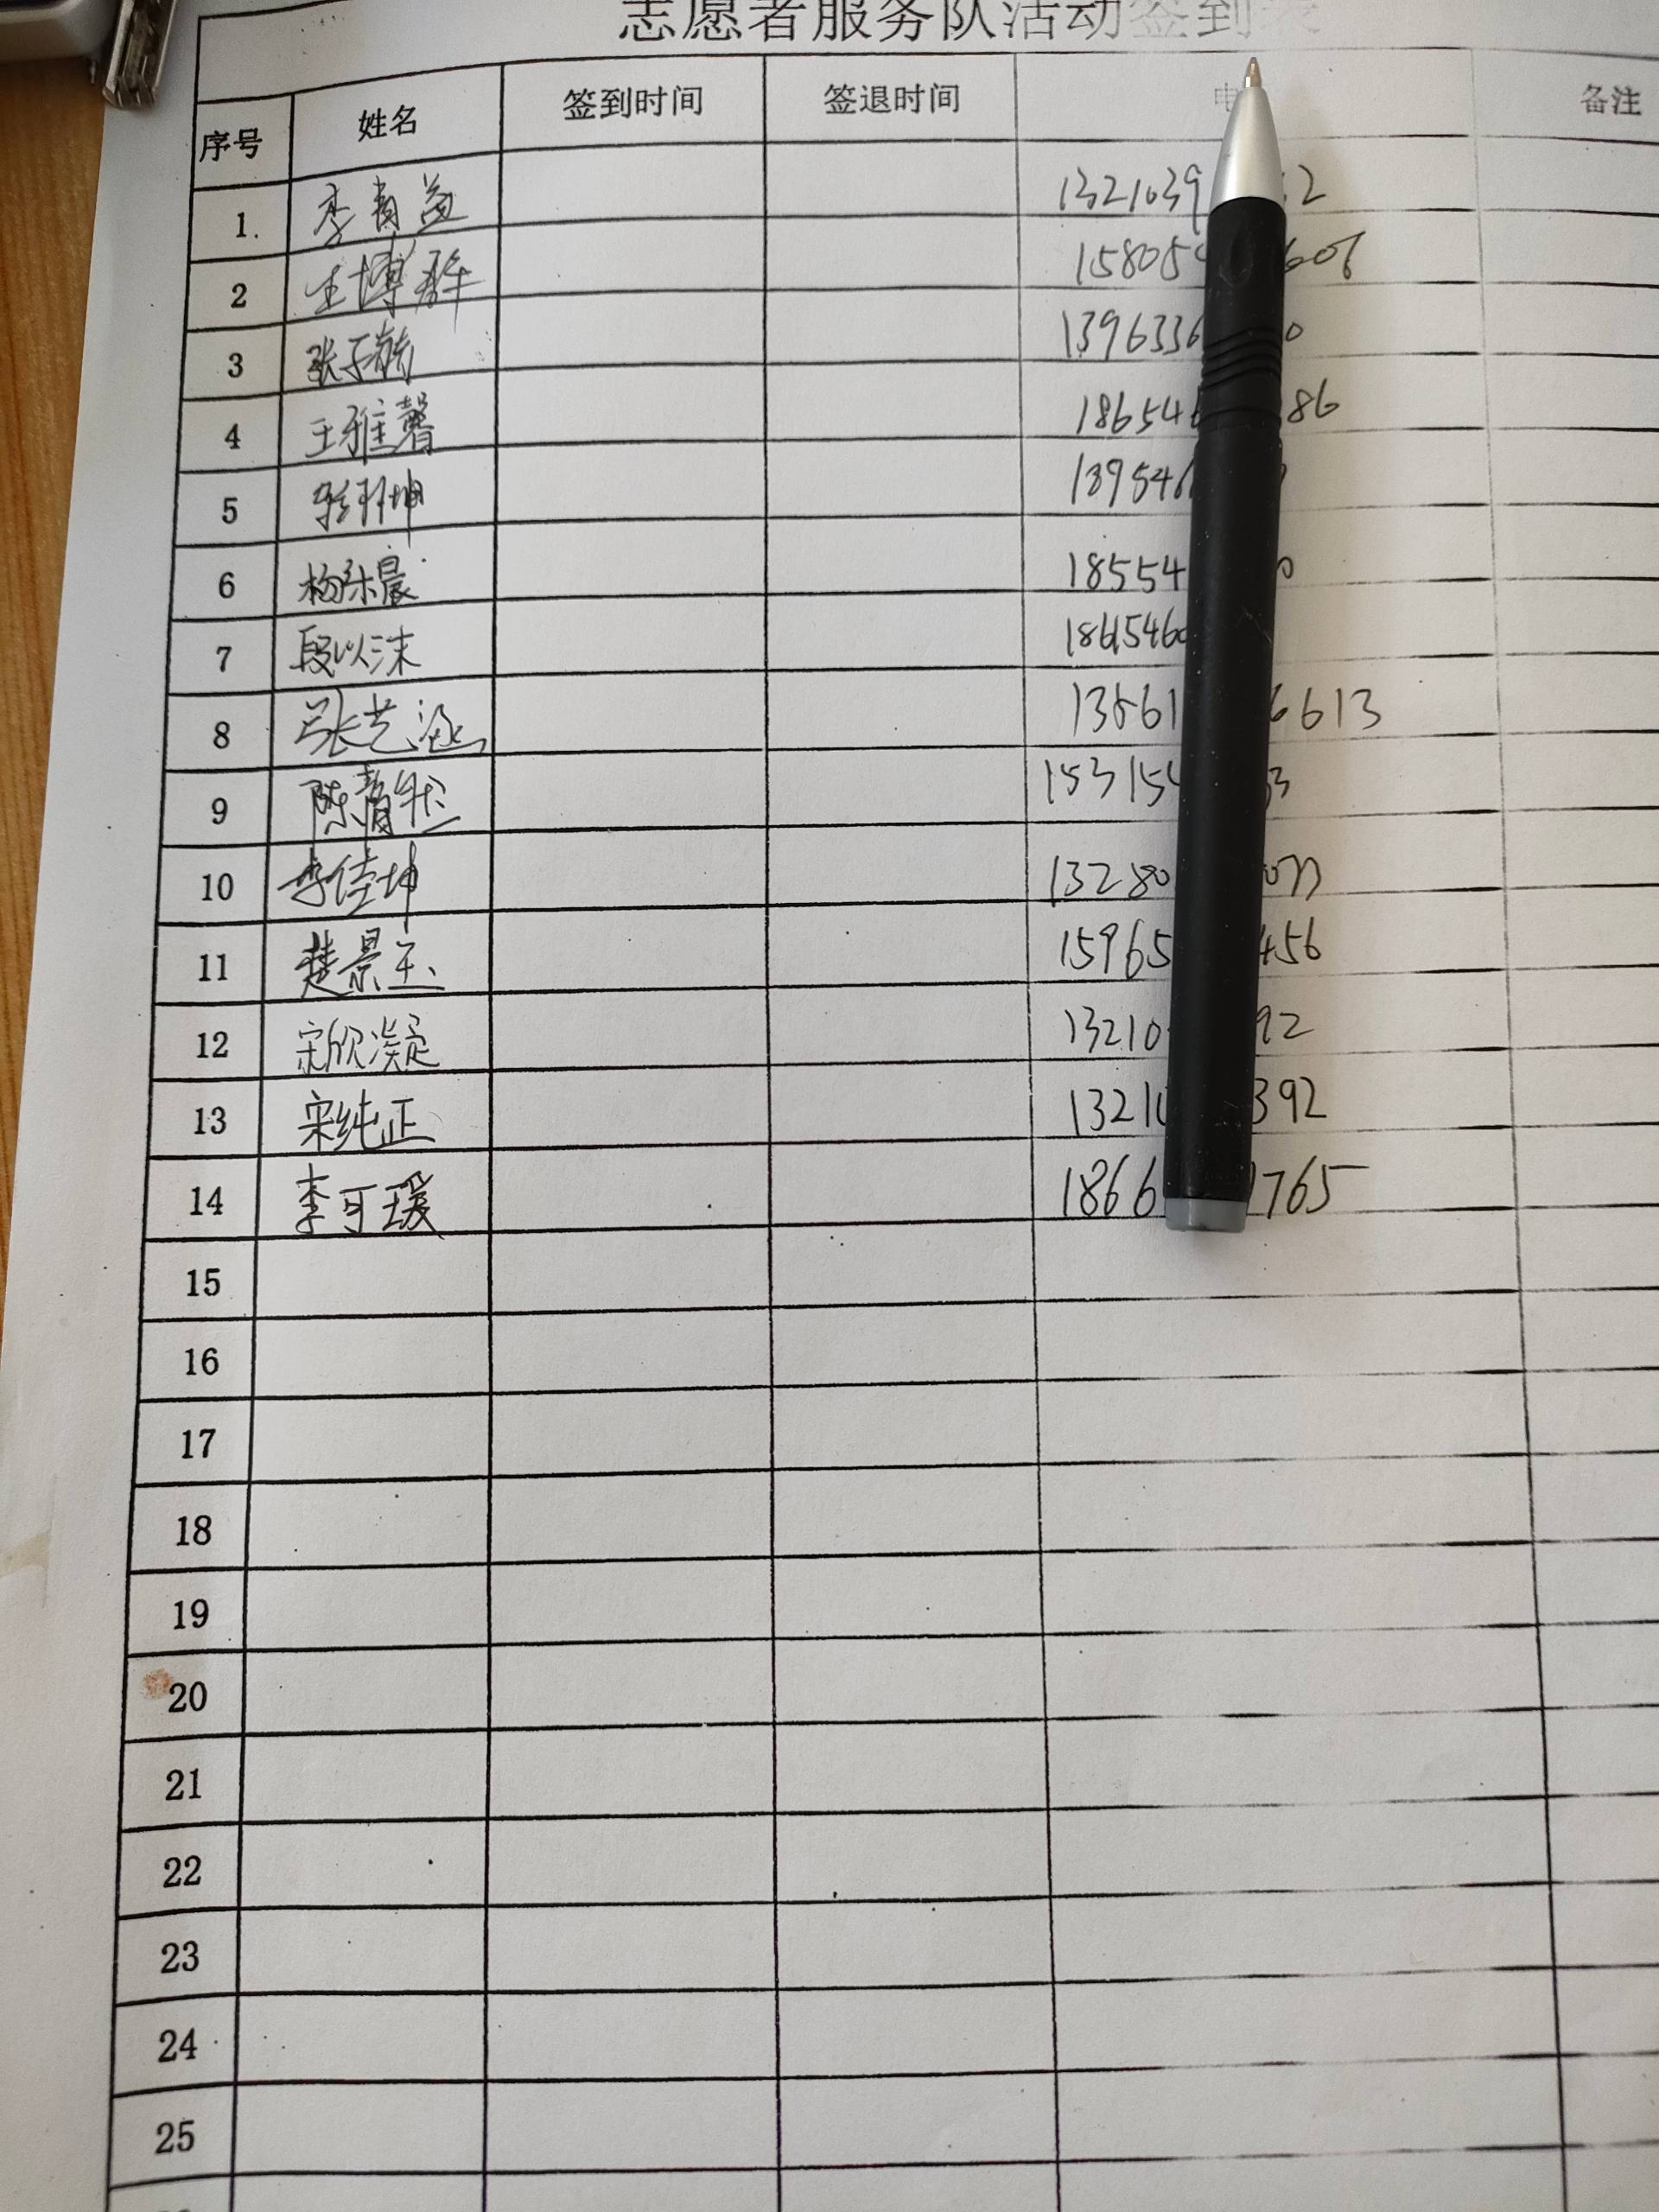 志愿者服务队活动签到表
序号 姓名 签到时间 签退时间 电 备注
1. 李 1321039 2
2 王博群 15805 606
3 张子毓 1396336 0
4 王雅馨 186546 86
5 坤 139546
6 杨 晨 18554 0
7 段以沫 1861546
8 张艺涵 13561 6613
9 陈 153154 3
10 李佳坤 13280
11 楚景玉 15965 456
12 宋欣凝 13210 92
13 宋纯正 1321 392
14 李可瑗 1866 765
15
16
17
18
19
20
21
22
23
24
25